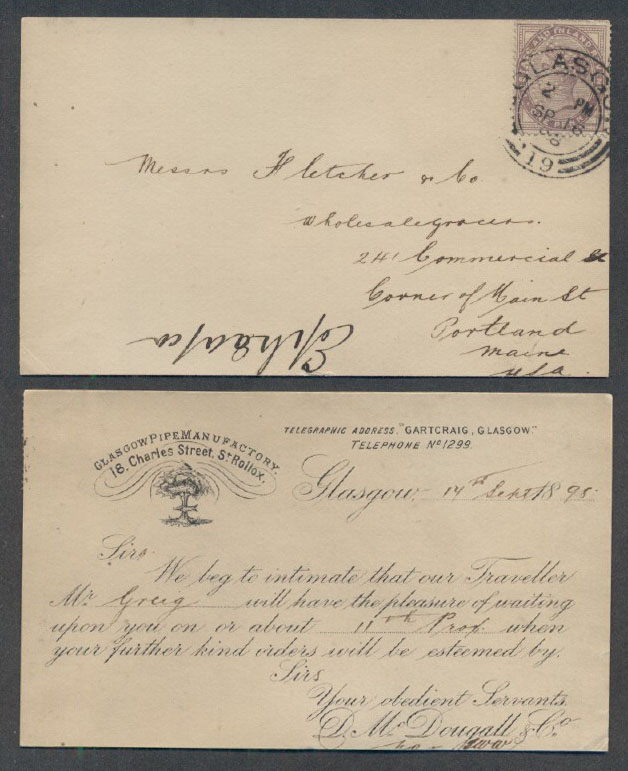 GLASGOW
2 PM
SP 16
19
Messrs Fletcher & Co.
Wholesale grocers.
241 Commercial St
Corner of Main St
Portland
Maine
USA.
GLASGOW PIPE MANUFACTORY.
18, Charles Street, St Rollox.
TELEGRAPHIC ADDRESS. "GARTCRAIG, GLASGOW."
TELEPHONE No 1299.
Glasgow 14th Sept 1895
Sirs
We beg to intimate that our Traveller
Mr Greig will have the pleasure of waiting
upon you on or about 11th Prox. when
your further kind orders will be esteemed by.
Sirs
Your obedient Servants.
D. McDougall & Co